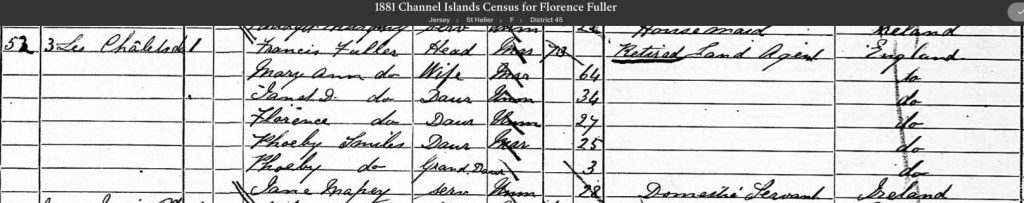 1881 Channel Islands Census for Florence Fuller
Jersey › St Helier › F › District 45
Serv Unm Housemaid Ireland
52 3 Les Châlets 1 Francis Fuller Head Mar 73 Retired Land Agent England
Mary Ann do Wife Mar 64 do
Janet D. do Daur Unm 34 do
Florence do Daur Unm 27 do
Phoeby Smiles Daur Mar 25 do
Phoeby do Grand Daur 3 do
Jane Serv Unm 28 Domestic Servant Ireland